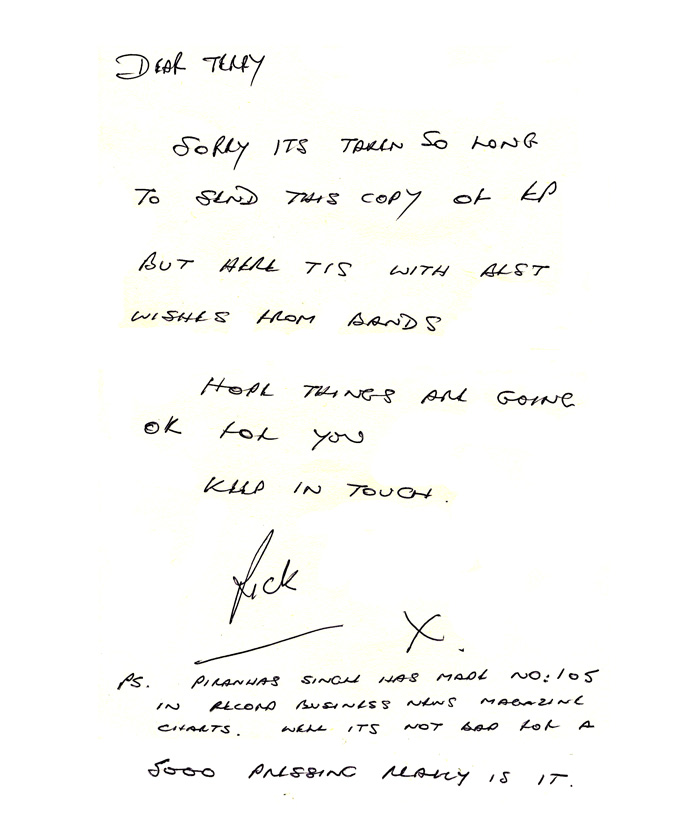 DEAR TERRY
SORRY ITS TAKEN SO LONG
TO SEND THIS COPY OF EP
BUT HERE TIS WITH BEST
WISHES FROM BANDS
HOPE THINGS ARE GOING
OK FOR YOU
KEEP IN TOUCH.
Rick
X.
PS. PIRANHAS SINGLE HAS MADE NO: 105
IN RECORD BUSINESS NEWS MAGAZINE
CHARTS. WELL ITS NOT BAD FOR A
5000 PRESSING REALLY IS IT.